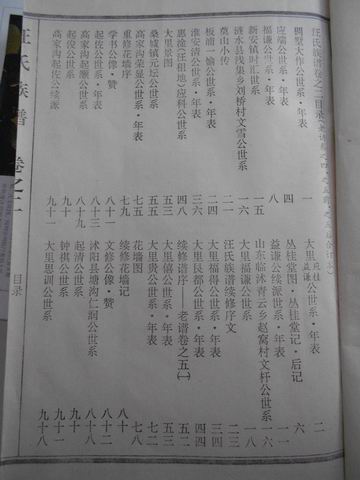 汪氏族谱卷之二目录
稠墅大作公世系·年表 一
大里应桂益谦公世系·年表 二
应端公世系·年表 四
丛桂堂图·丛桂堂记·后记 六
福谦公世系·年表
益谦公续派世系·年表
新安镇时汇世系 一五
山东临沭青云乡赵窝村文杆公世系
涟水县浅集乡刘桥村文雪公世系 一六
大里福谦公世系·年表 一八
莫山小传 二一
汪氏族谱续修序文 二三
板浦一愉公世系·年表 二六
大里福得公世系·年表 三四
淮安清公世系·年表 三六
大里艮都公世系·年表 四四
惠淦(汪租地)应科公世系·年表 四八
续修谱序——老谱卷之五(一) 五二
大里景图 五三
大里僖公世系·年表 五二
桑城镇 坛公世系 五五
大里贵公世系·年表 七二
高家沟荣显公世系·年表 七五
花墙图 七八
重修花墙序 七九
续修花墙记 八十
学书公像·赞 八十一
文修公像·赞 八十二
起佐公世系·年表 八十三
沭阳县塘沟仁润公世系 八十八
起俊公世系
起清公世系 九十
高家沟起灏公世系
钟祺公世系
高家沟起佐公续派
大里思训公世系 九十八
汪氏族谱 卷之二 目录